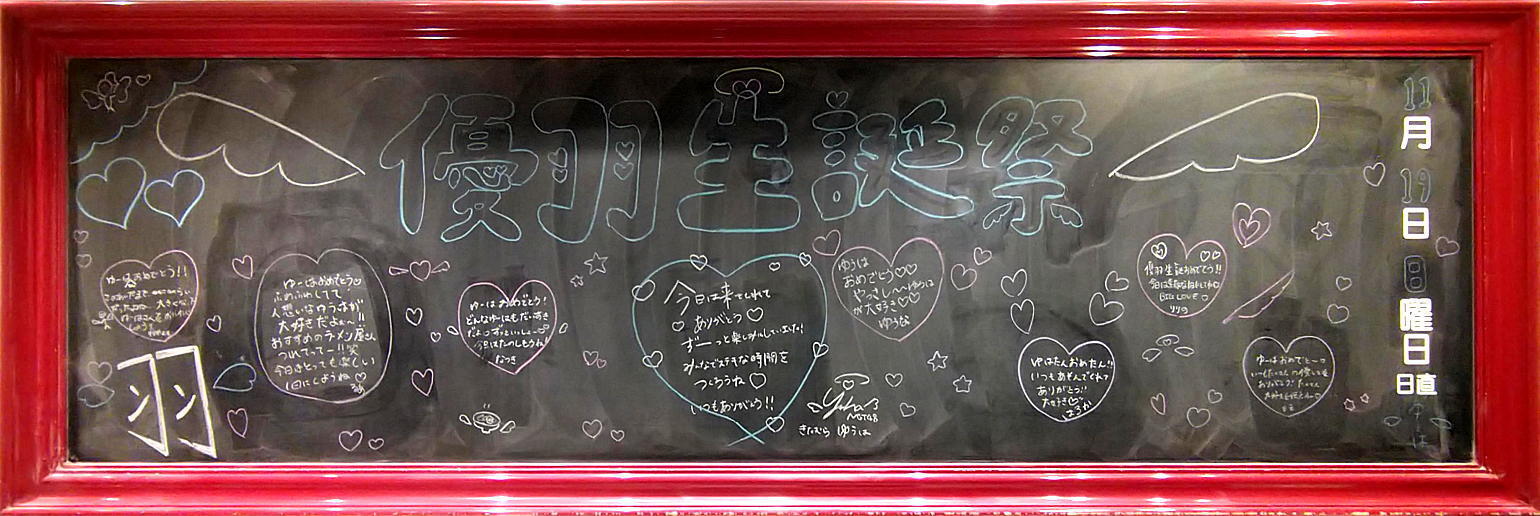 優羽生誕祭
11月19日日曜日
日直
ゆーはおめでとう♡
ふめふめしてて
人想いなゆうはが
大好きだよぉ〜!!
おすすめのラーメン屋さん
つれてってー!!笑
今日はとっても楽しい
1日にしようね♡
ゆーはおめでとう!
どんなゆーはもだいすき
だよ♡ずっといっしょ
今日はたのしもうね!
なつき
今日は来てくれて
♡ありがとう♡
ずーっと楽しみにしていました!
みんなでステキな時間を
つくろうね♡
いつもありがとう!!
Yuha
NGT48
きたむら ゆうは
ゆうは
おめでとう♡♡
やっさしーいゆうは
が大好き♡♡
ゆうな
ゆはたんおめたん!!
いつもあそんでくれて
ありがとう!!
大好き♡
はるか
優羽生誕おめでとう!!
BIG LOVE ♡
りりの
ゆーはおめでとーっ
羽